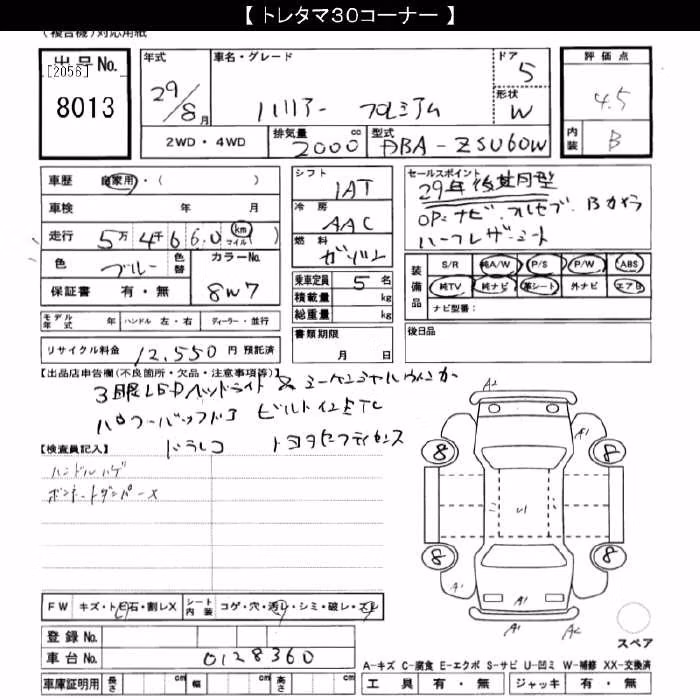 【トレタマ30コーナー】
(複合機)対応用紙
出品No.
[2056]
8013
年式
29/8月
車名・グレード
ハリアー プレミアム
ドア
5
形状
W
評価点
4.5
内装
B
2WD・4WD
排気量
2000 cc
型式
DBA-ZSU60W
車歴 自家用・( )
車検 年 月
走行 5万4千660 km マイル ( )
色 ブルー 色替
カラーNo.
8W7
保証書 有・無
シフト
IAT
冷房
AAC
燃料
ガソリン
乗車定員 5 名
積載量 kg
総重量 kg
書類期限
月 日
セールスポイント
29年後期型
OP:ナビ.フルセグ.Bカメラ
ハーフレザーシート
装備品
S/R 純A/W P/S P/W ABS
純TV 純ナビ 革シート 外ナビ エアB
ナビ型番:
モデル年式 年 ハンドル 左・右 ディーラー・並行
リサイクル料金 12,550 円 預託済
後日品
【出品店申告欄(不良箇所・欠品・注意事項等)】
3眼LEDヘッドライト & シーケンシャルウィンカー
パワーバックドア ビルトインETC
ドラレコ トヨタセーフティセンス
【検査員記入】
ハンドルハゲ
ボンネットダンパーX
A2
A1
8 8
U1
8 8
A1
A1
A1 A2
スペア
FW キズ・トビ石・割レX シート内装 コゲ・穴・汚レ・シミ・破レ・スレ
登録No.
車台No. 0128360
車庫証明用 長さ cm 幅 cm 高さ cm
A-キズ C-腐食 E-エクボ S-サビ U-凹ミ W-補修 XX-交換済
工具 有・無 ジャッキ 有・無